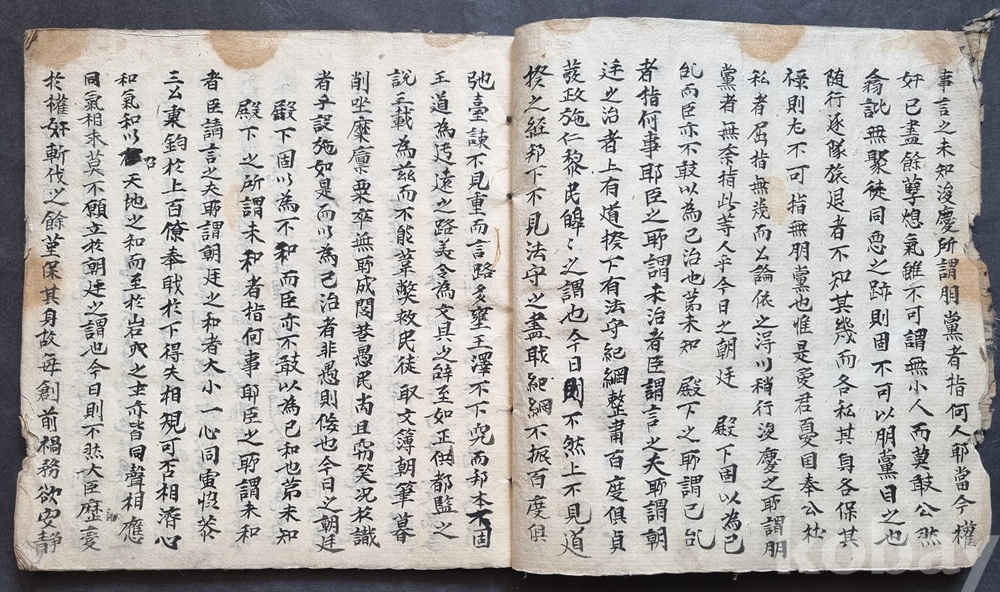 事言之未知浚慶所謂朋黨者指何人耶當今權
奸已盡餘孽熄氣雖不可謂無小人而莫敢公然
翕訿無聚徒同惡之跡則固不可以朋黨目之也
随行逐隊旅退者不知其幾而各私其身各保其
祿則尤不可指無朋黨也惟是愛君憂国奉公杜
私者屈指無幾而公論依之淂川稍行浚慶之所謂朋
黨者無奈指此等人乎今日之朝廷 殿下固以為已
乱而臣亦不敢以為已治也第未知 殿下之所謂已乱
者指何事耶臣之所謂未治者臣謂言之夫所謂朝
廷之治者上有道揆下有法守紀綱整肅百度俱貞
發政施仁黎民皞〻之謂也今日則不然上不見道
揆之経邦下不見法守之盡職紀綱不振百度俱
弛臺諫不見重而言路多壅王澤不下究而邦本不固
王道為迂遠之路美令為文具之辭至如正供都監之
說三載為玆而不能革弊救民徒取文簿朝筆暮
削坐糜廩粟卒無所成閭巷愚民尚且竊笑况於識
者乎設施如是而以為已治者非愚則佞也今日之朝廷
殿下固以為不和而臣亦不敢以為已和也第未知
殿下之所謂未和者指何事耶臣之所謂未和
者臣請言之夫所謂朝廷之和者大小一心同寅恊恭
三公秉鈞於上百僚奉職於下得失相規可否相濟心
和氣和以召天地之和而至於岩穴之士亦皆同聲相應
同氣相求莫不願立於朝廷之謂也今日則不然大臣歷變
於權奸斬伐之餘堇保其身故每創前禍務欲安靜